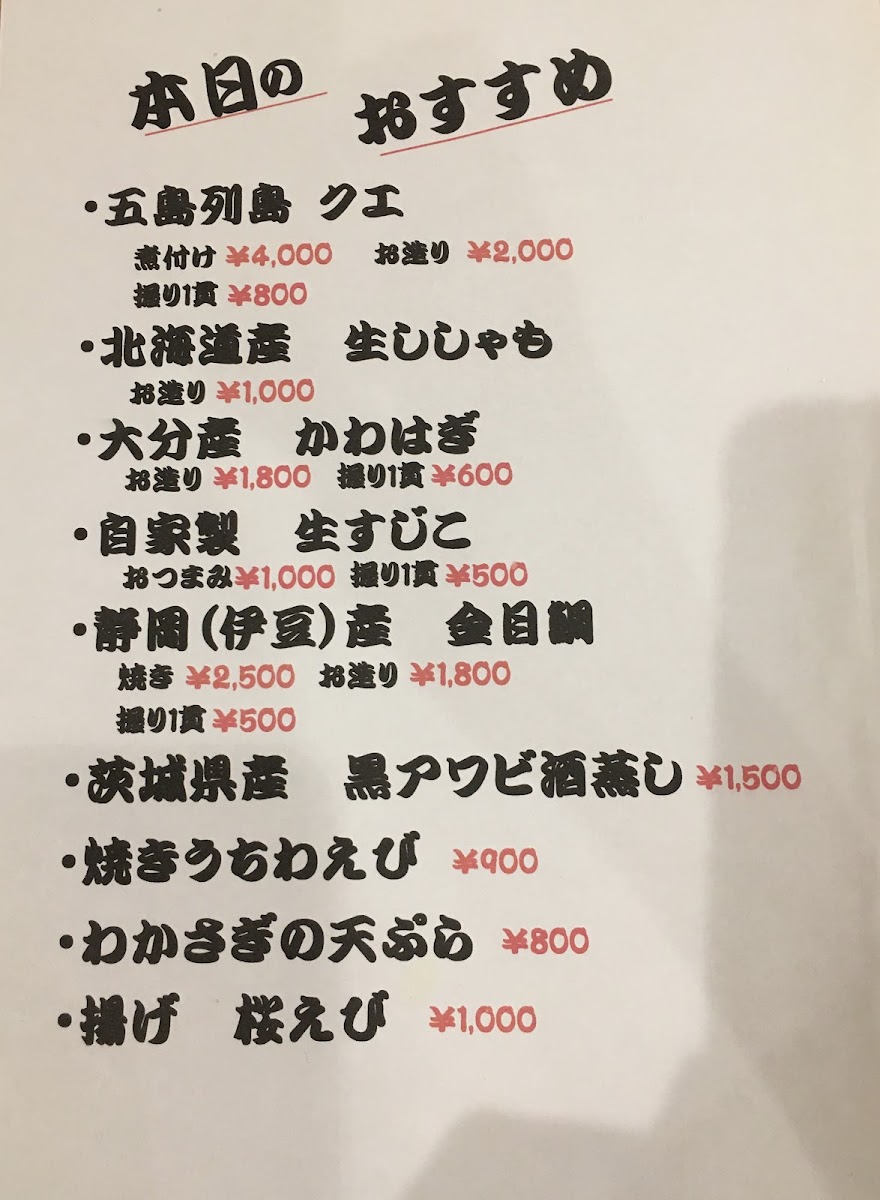 本日の おすすめ
・五島列島 クエ
煮付け ¥4,000 お造り ¥2,000
握り1貫 ¥800
・北海道産 生ししゃも
お造り ¥1,000
・大分産 かわはぎ
お造り ¥1,800 握り1貫 ¥600
・自家製 生すじこ
おつまみ ¥1,000 握り1貫 ¥500
・静岡(伊豆)産 金目鯛
焼き ¥2,500 お造り ¥1,800
握り1貫 ¥500
・茨城県産 黒アワビ酒蒸し ¥1,500
・焼きうちわえび ¥900
・わかさぎの天ぷら ¥800
・揚げ 桜えび ¥1,000